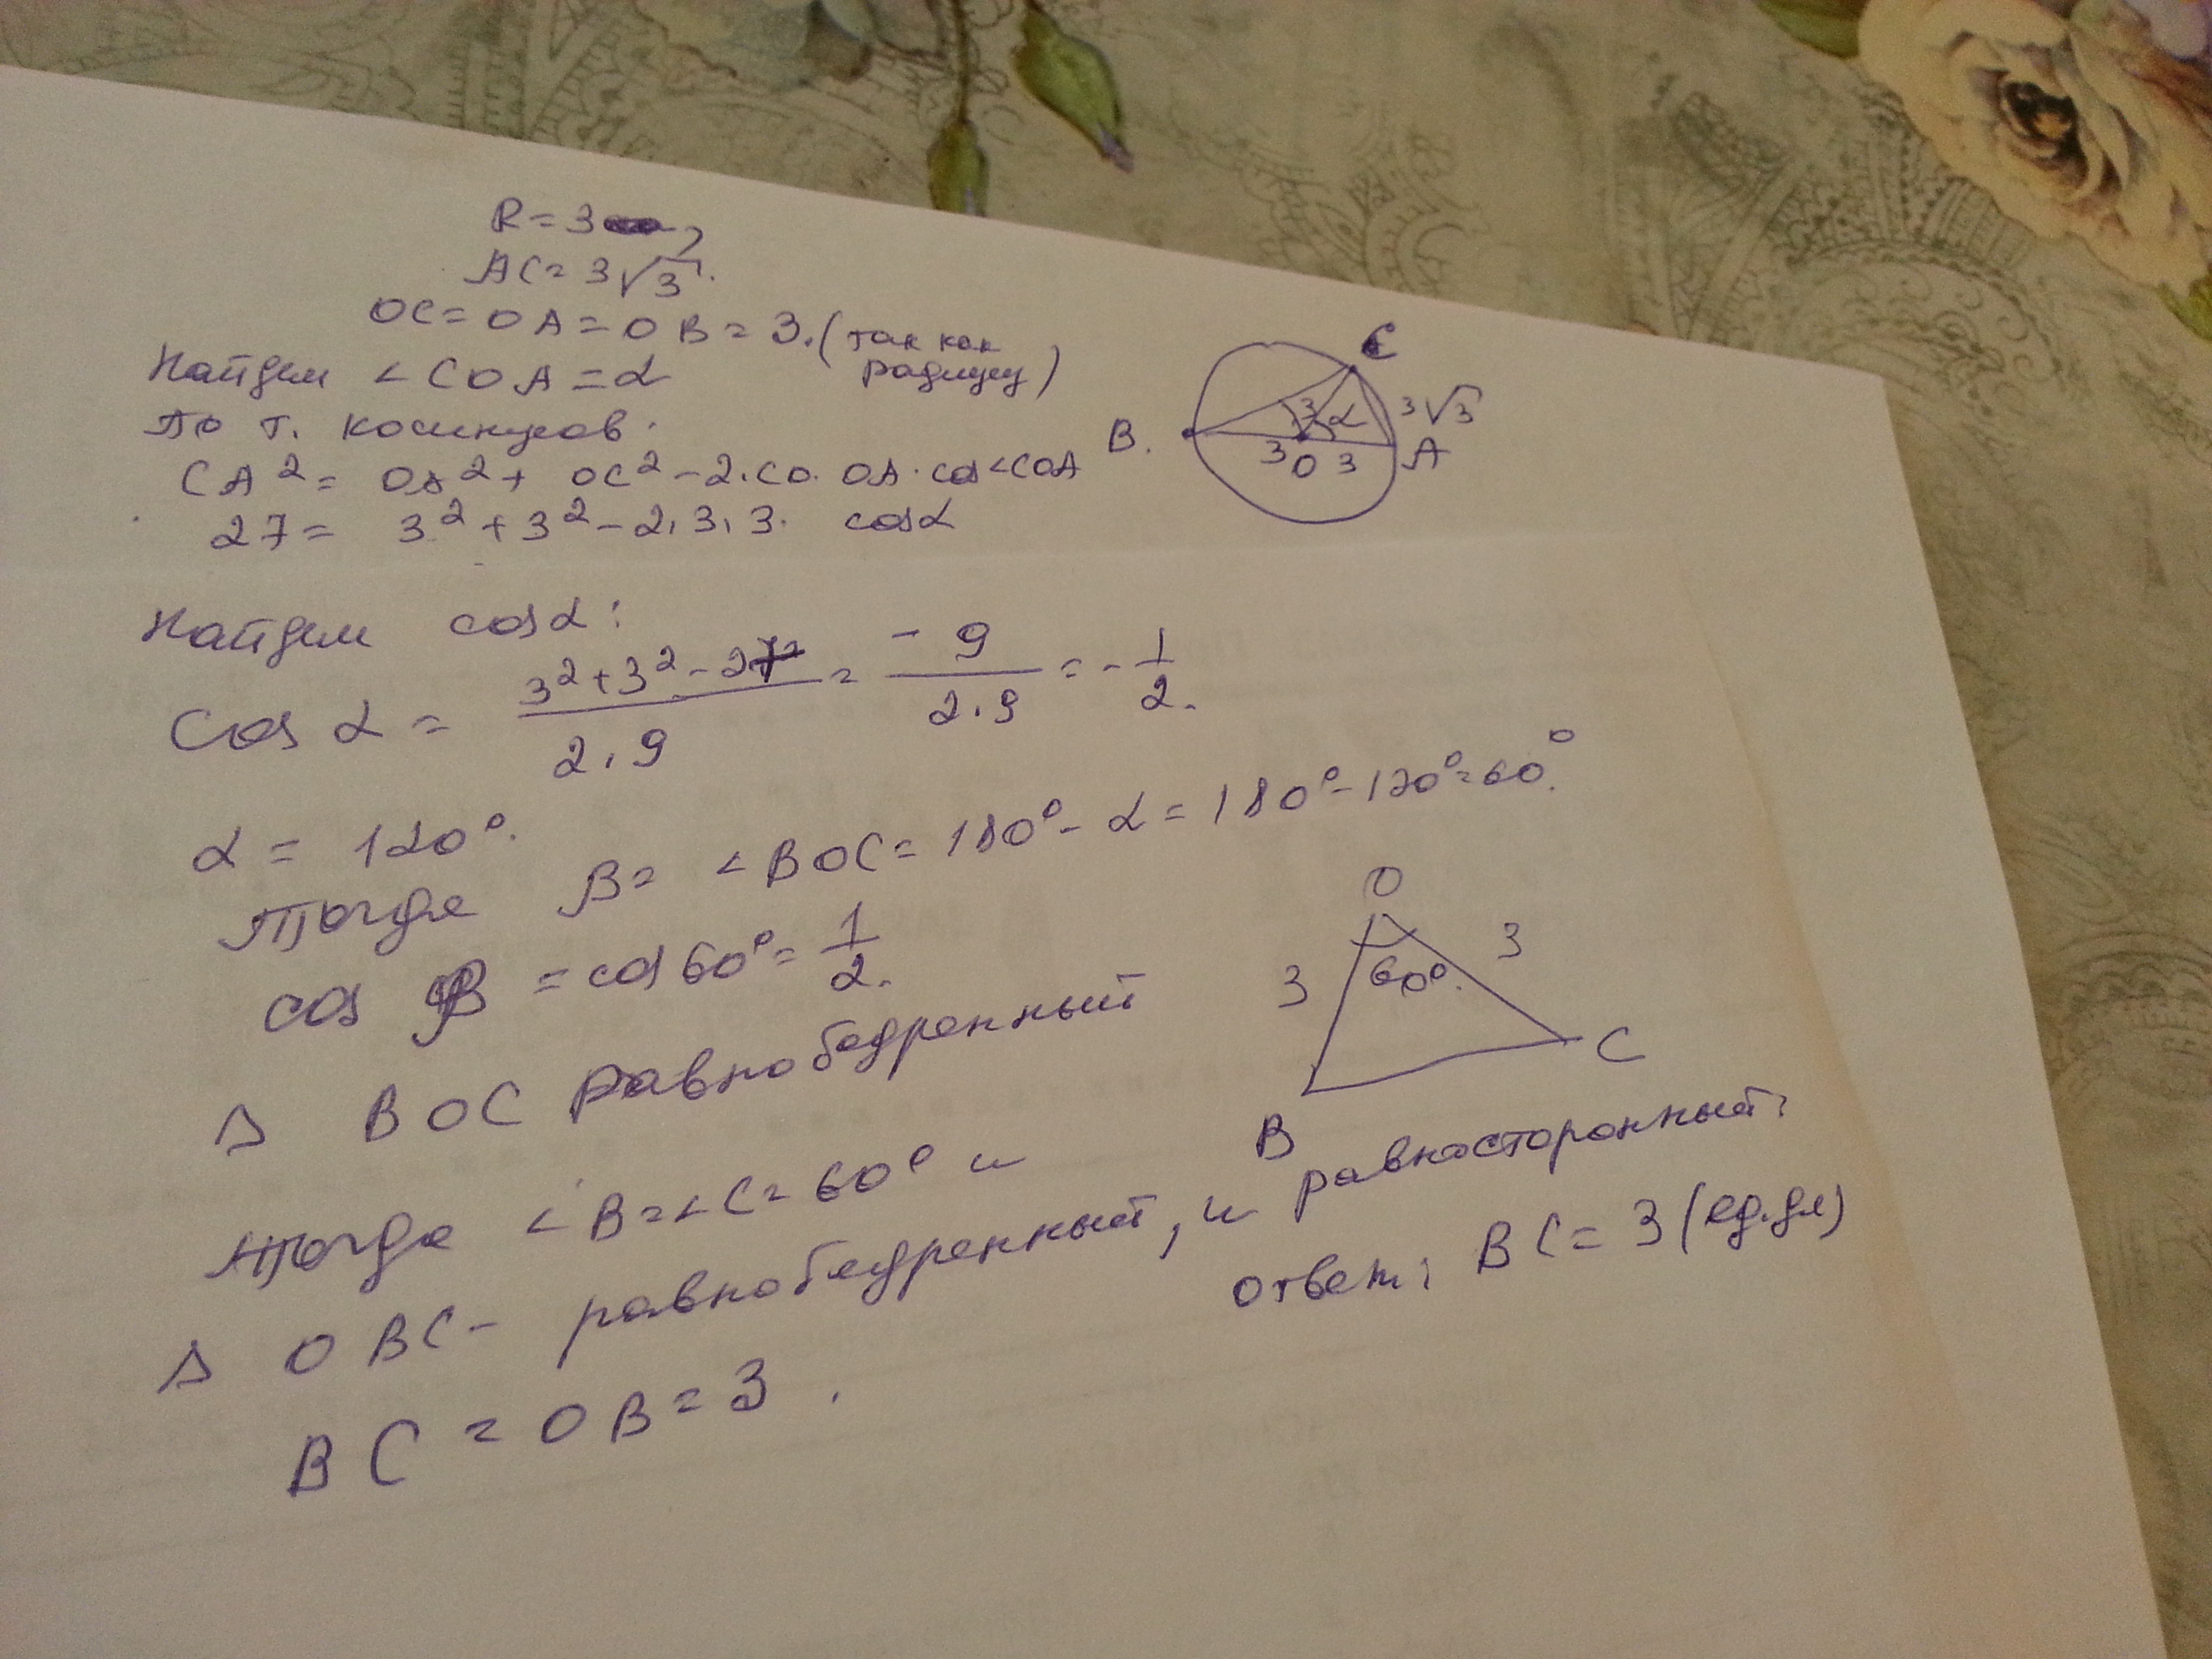 R = 3
AC = 3√3.
OC = OA = OB = 3. (так как радиусы)
Найдем ∠COA = α
По т. косинусов:
CA² = OA² + OC² - 2·CO·OA·cos∠COA
27 = 3² + 3² - 2·3·3· cosα
C
3 α 3√3
B. 3 O 3 A
Найдем cosα:
cos α = (3² + 3² - 27)/(2·9) = -9/(2·9) = -1/2.
α = 120°.
Тогда β = ∠BOC = 180° - α = 180° - 120° = 60°.
cos β = cos 60° = 1/2.
O
3 60°. 3
B C
Δ BOC равнобедренный
Тогда ∠B = ∠C = 60° и
Δ OBC - равнобедренный, и равносторонный:
BC = OB = 3.
ответ: BC = 3 (ед.дл)